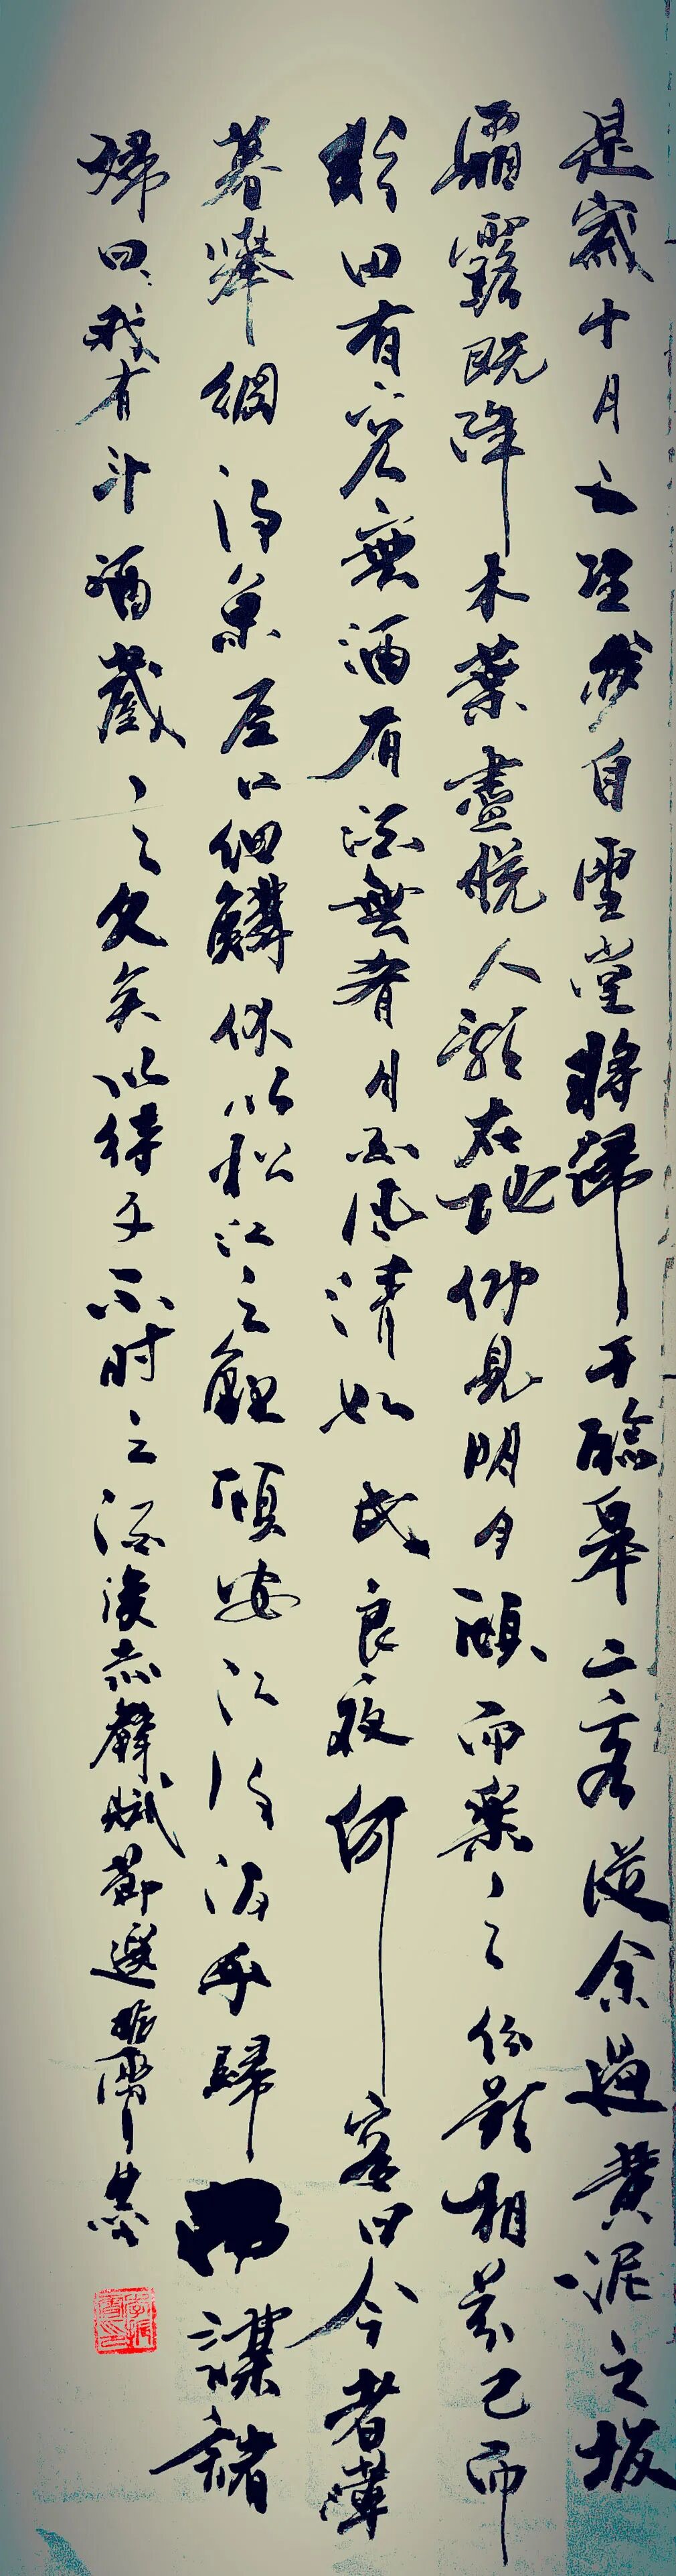 是歲十月之望步自雪堂將歸于臨皋二客從余過黃泥之坂
霜露既降木葉盡脫人影在地仰見明月顧而樂之行歌相答已而
歎曰有客無酒有酒無肴月白風清如此良夜何客曰今者薄
暮舉網得魚巨口細鱗狀似松江之鱸顧安所得酒乎歸而謀諸
婦婦曰我有斗酒藏之久矣以待子不時之須後赤壁賦節選